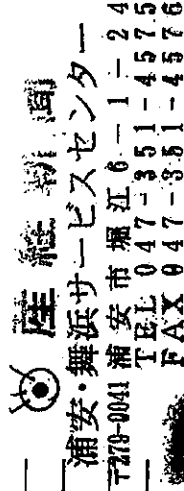 浦安・舞浜サービスセンター
〒279-0041 浦安市堀江6-1-24
TEL 047-351-4575
FAX 047-351-4576